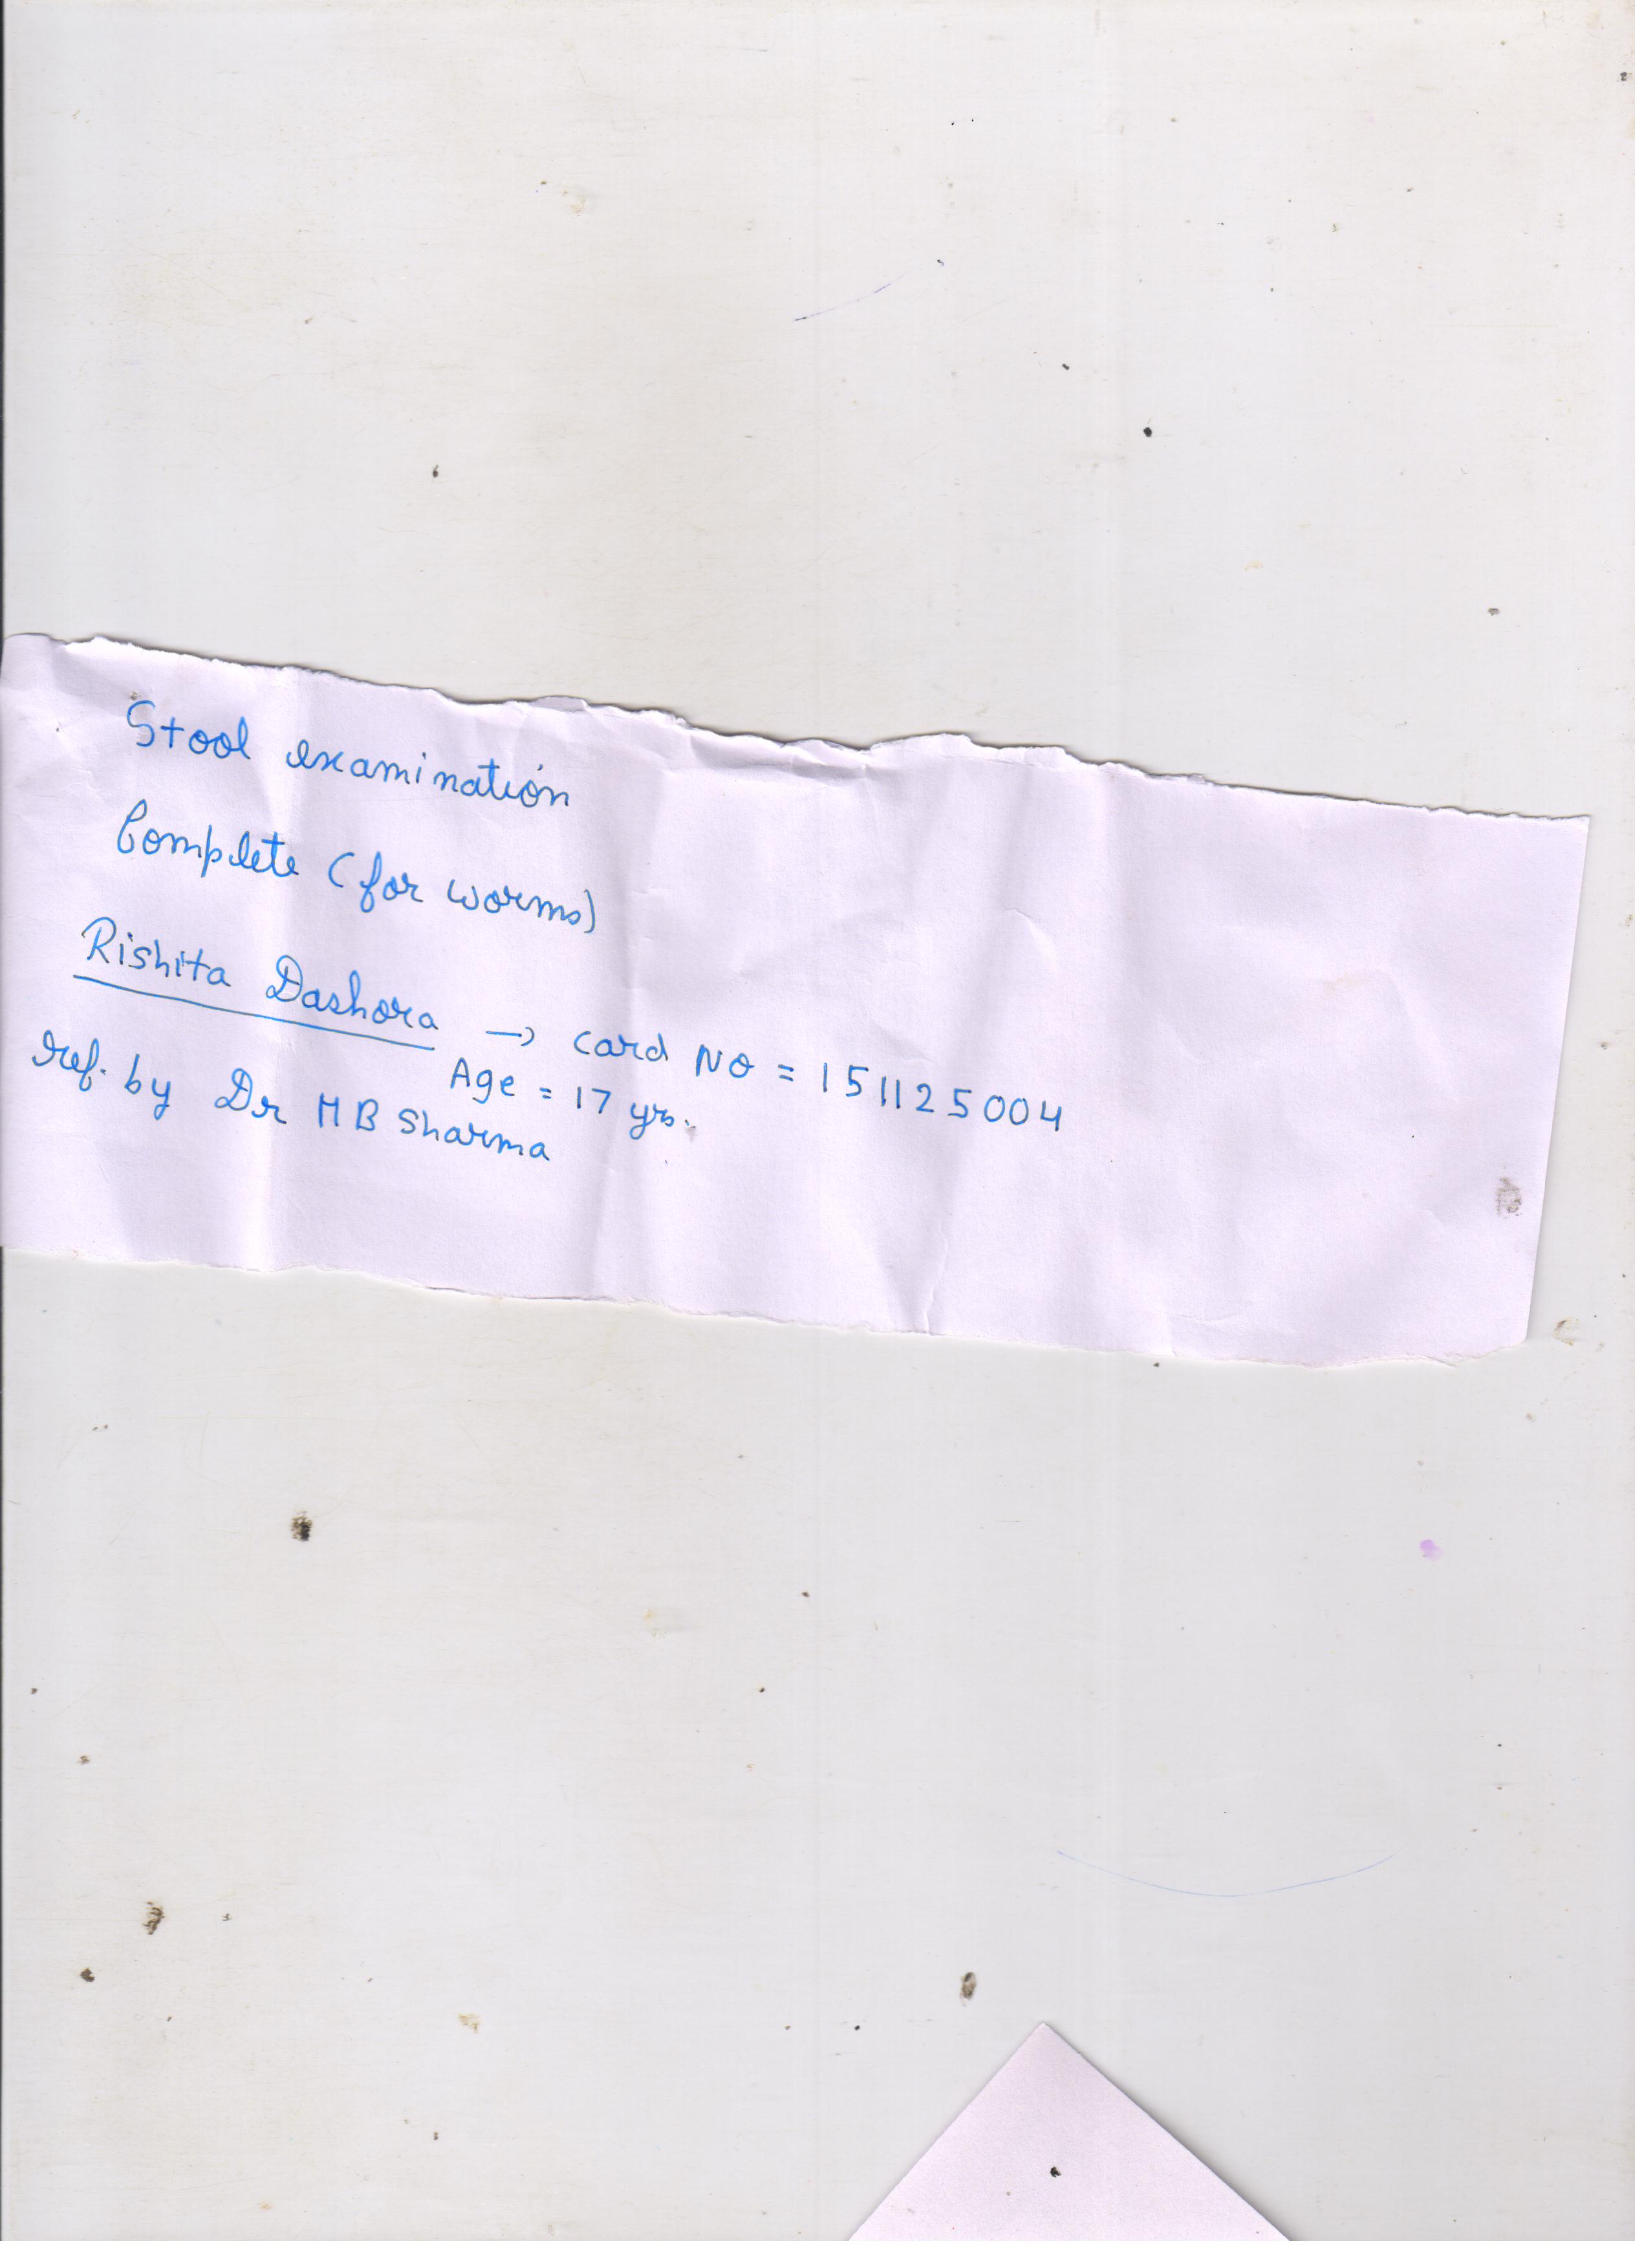 Stool examination
Complete (for worms)
Rishita Dashora → Card No = 151125004
Age = 17 yrs.
ref. by Dr M B Sharma